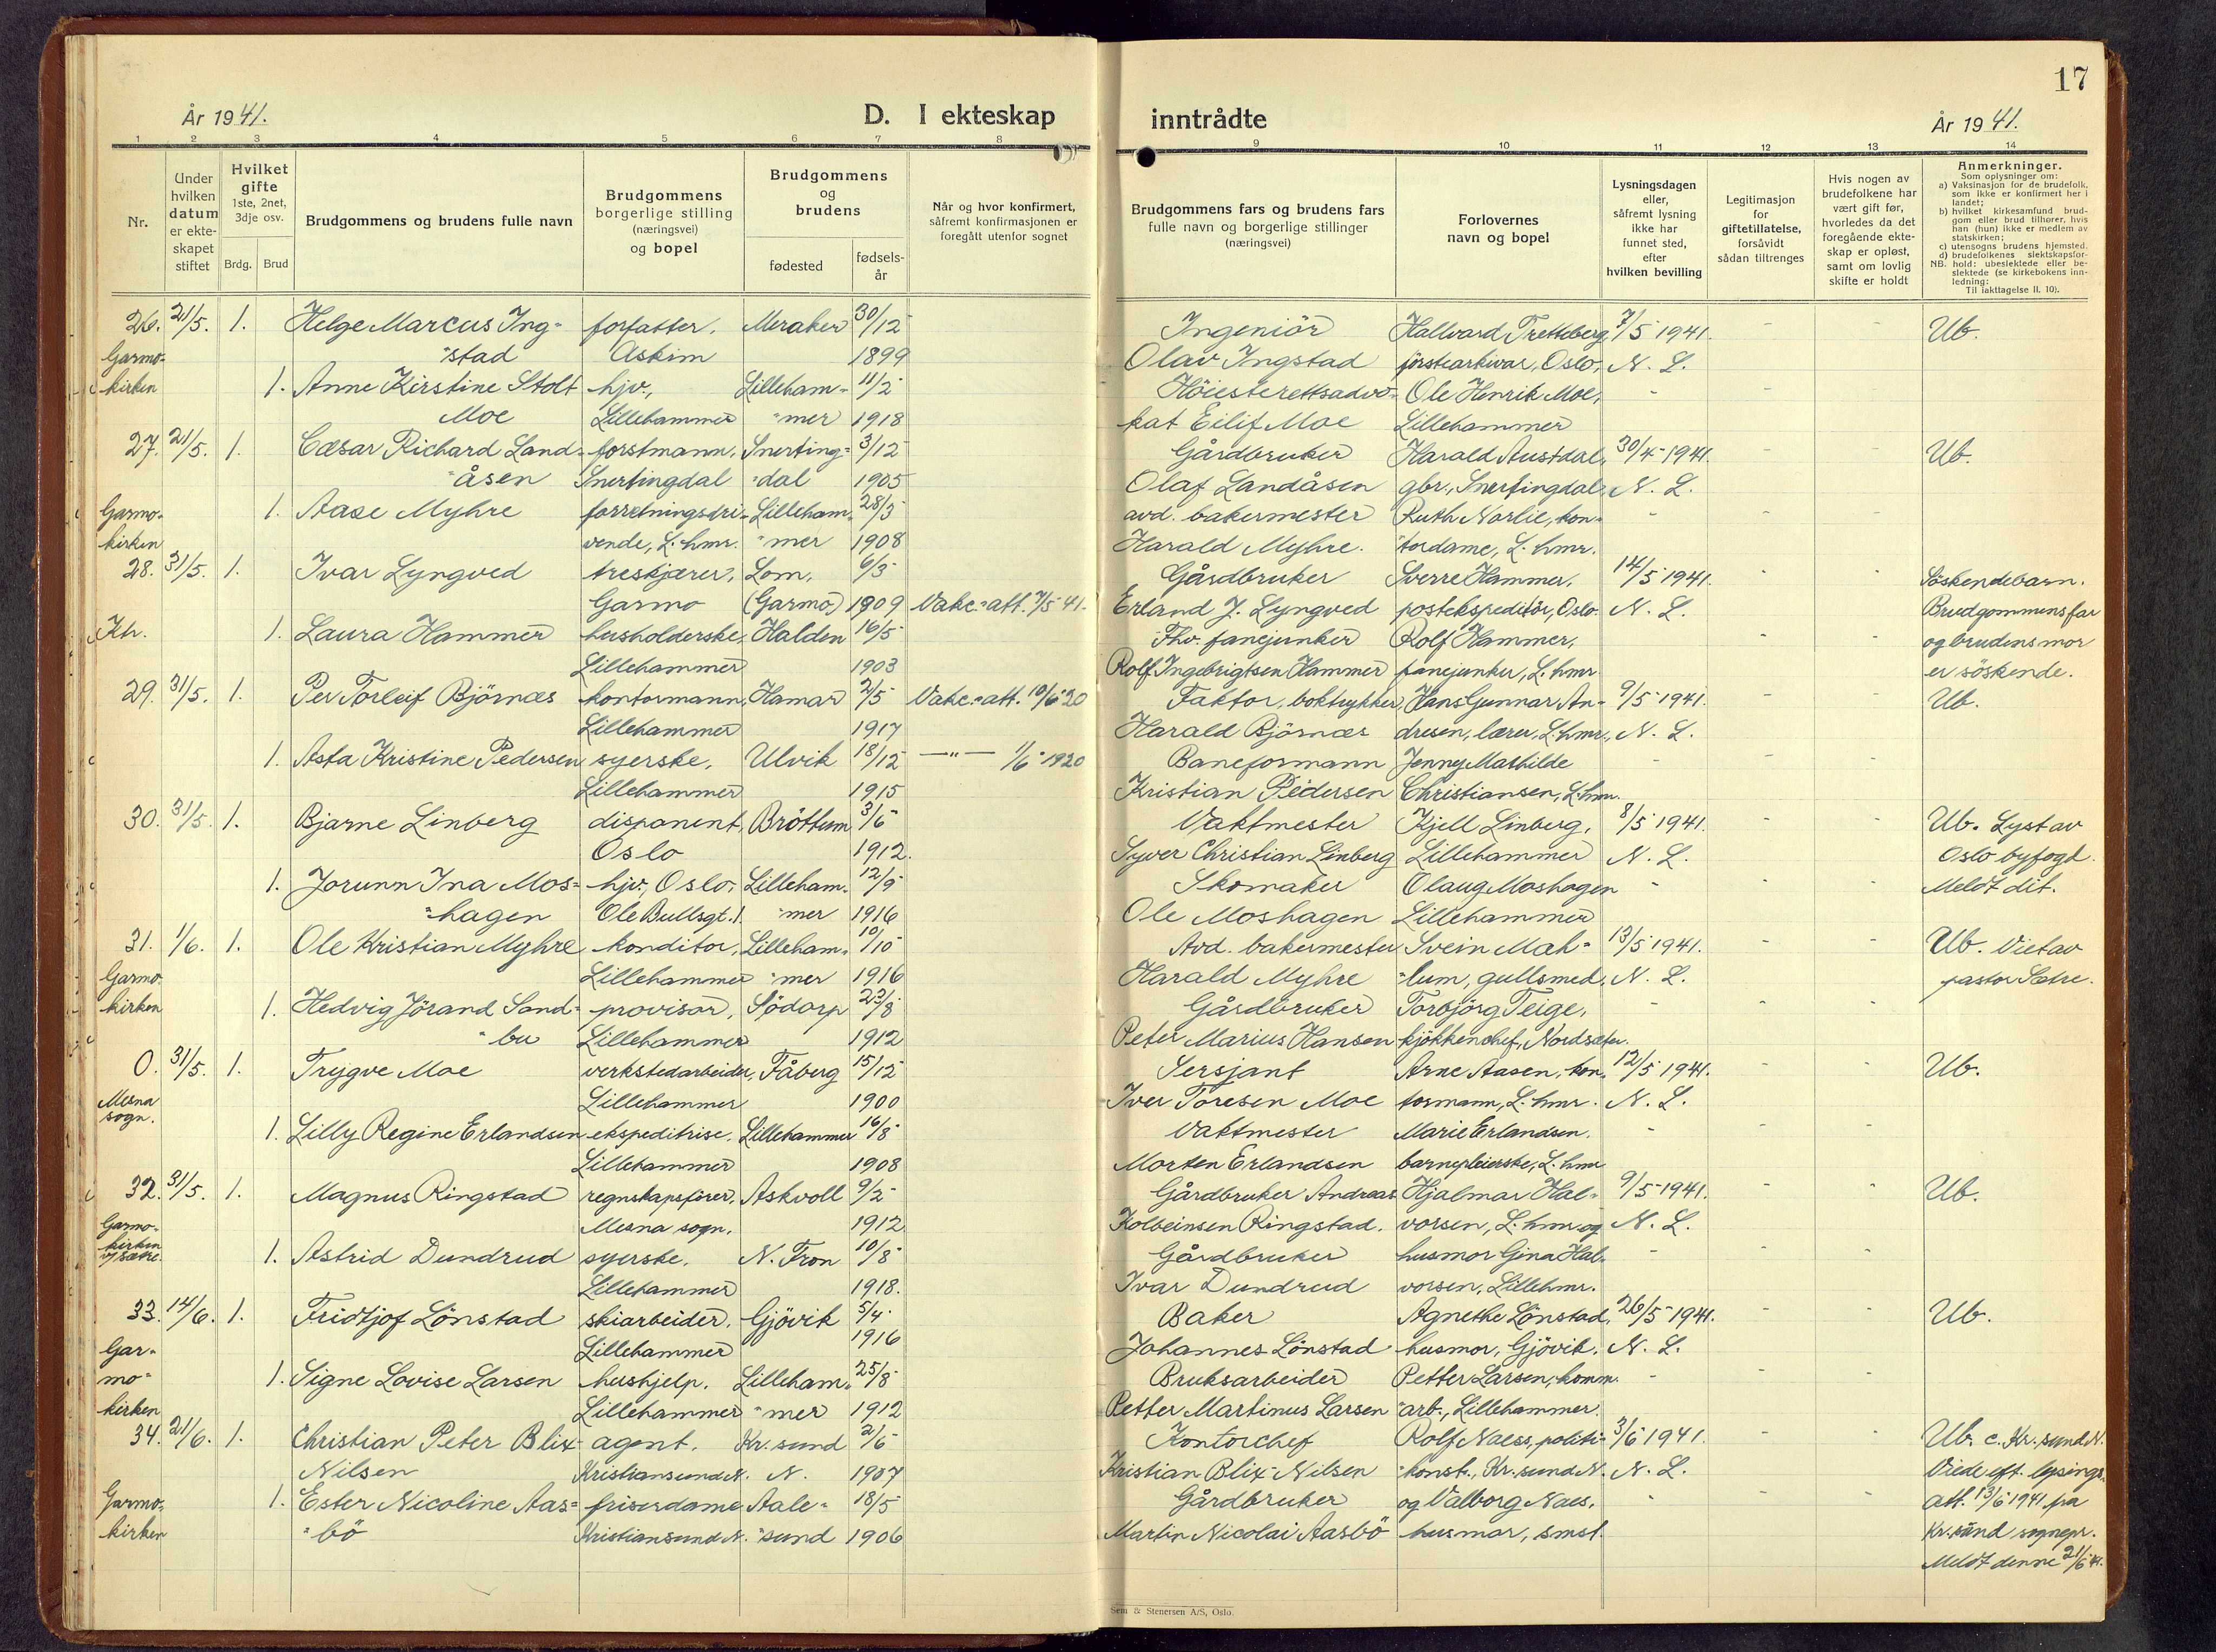 17
År 1941.
D. I ekteskap
inntrådte
År 1941.
1 2 3 4 5 6 7 8
9 10 11 12 13 14
Nr.
Under hvilken datum er ekte-skapet stiftet
Hvilket gifte 1ste, 2net, 3dje osv.
Brdg. Brud
Brudgommens og brudens fulle navn
Brudgommens borgerlige stilling (næringsvei) og bopel
Brudgommens og brudens
fødested
fødsels-år
Når og hvor konfirmert, såfremt konfirmasjonen er foregått utenfor sognet
Brudgommens fars og brudens fars fulle navn og borgerlige stillinger (næringsvei)
Forlovernes navn og bopel
Lysningsdagen eller, såfremt lysning ikke har funnet sted, efter hvilken bevilling
Legitimasjon for giftetillatelse, forsåvidt sådan tiltrenges
Hvis nogen av brudefolkene har vært gift før, hvorledes da det foregående ekte-skap er opløst, samt om lovlig skifte er holdt
Anmerkninger.
Som oplysninger om:
a) Vaksinasjon for de brudefolk, som ikke er konfirmert her i landet;
b) hvilket kirkesamfund brud-gom eller brud tilhører, hvis han (hun) ikke er medlem av statskirken;
c) utensogns brudens hjemsted.
d) brudefolkenes slektskapsfor-hold: ubeslektede eller be-slektede (se kirkebokens inn-ledning:
NB. Til iakttagelse II. 10).
26. 21/5. 1. Helge Marcus Ing- forfatter. Meraker 30/12 Ingeniör Hallvard Trætteberg, 7/5 1941. - - Ub.
Garmo- "stad Askim 1899 Olav Ingstad förstearkivar, Oslo, N. L.
kirken 1. Anne Kirstine Stolt hjv., Lilleham- 11/2 Höiesterettsadvo- Ole Henrik Moe, -
Moe Lillehammer "mer 1918 kat Eilif Moe Lillehammer
27. 21/5. 1. Cæsar Richard Land- forstmann. Snerting- 3/12 Gårdbruker Harald Austdal, 30/4-1941. - - Ub.
"åsen Snertingdal "dal 1905 Olaf Landåsen gbr., Snertingdal. N. L.
Garmo- 1. Aase Myhre forretningsdri- Lilleham- 28/3 avd. bakermester Ruth Norlie, kon- - - -
kirken vende, L.hmr. "mer 1908 Harald Myhre. "tordame, L.hmr.
28. 31/5. 1. Ivar Lyngved treskjærer, Lom, 6/3 Gårdbruker Sverre Hammer, 14/5 1941. - - Söskendebarn.
Garmo (Garmo) 1909 Vakc.-att. 7/5 41. Erland J. Lyngved postekspeditör, Oslo. N. L. Brudgommens far
Kh. 1. Laura Hammer husholderske Halden 16/5 Fhv. fanejunker Rolf Hammer, - - og brudens mor
Lillehammer 1903 Rolf Ingebrigtsen Hammer fanejunker, L.hmr er söskende.
29. 31/5. 1. Per Torleif Björnæs kontormann, Hamar 2/5 Vakc.-att. 10/6 20 Faktor, boktrykker, Hans Gunnar An- 9/5-1941. - - Ub.
Lillehammer 1917 Harald Björnæs dresen, lærer, L.hmr., N. L.
1. Asta Kristine Pedersen syerske. Ulvik 18/12 —"— 1/6-1920 Baneformann Jenny Mathilde - - -
Lillehammer 1915 Kristian Pedersen Christiansen, L.hmr.
30. 31/5. 1. Bjarne Linberg disponent, Bröttum 3/6 Vaktmester Kjell Linberg, 8/5 1941. - - Ub. Lyst av
Oslo 1912. Syver Christian Linberg Lillehammer N. L. Oslo byfogd.
1. Jorunn Ina Mos- hjv., Oslo, Lilleham- 12/9 Skomaker Olaug Moshagen - - - Meldt dit.
"hagen Ole Bullsgt. 1. "mer 1916 Ole Moshagen Lillehammer
31. 1/6. 1. Ole Kristian Myhre konditor, Lilleham- 10/10 Avd. bakermester Svein Mæh- 13/5 1941. - - Ub. Viet av
Garmo- Lillehammer "mer 1916 Harald Myhre "lum, gullsmed, N. L. pastor Sætre.
kirken 1. Hedvig Jörand Sand- provisor, Södorp 23/8 Gårdbruker Torbjörg Teige, - - -
"bu Lillehammer 1912 Peter Marius Hansen kjökkenchef, Nordsæter.
0. 31/5. 1. Trygve Moe verkstedarbeider, Fåberg 15/12 Sersjant Arne Aasen, kon- 12/5 1941. - - Ub.
Mesna sogn. Lillehammer 1900 Iver Toresen Moe tormann, L.hmr. N. L.
1. Lilly Regine Erlandsen ekspeditrise. Lillehammer 16/8 Vaktmester Marie Erlandsen. - - -
Lillehammer 1908 Morten Erlandsen barnepleierske, L.hmr
32. 31/5. 1. Magnus Ringstad regnskapsförer, Askvoll 9/2 Gårdbruker Andreas Hjalmar Hal- 9/5-1941. - - Ub.
Garmo- Mesna sogn. 1912 Kolbeinsen Ringstad. vorsen, L.hmr. og N. L.
kirken v/ Sætre. 1. Astrid Dundrud syerske. N. Fron 10/8 Gårdbruker husmor Gina Hal- - - -
Lillehammer 1918. Ivar Dundrud vorsen, Lillehmr.
33. 14/6. 1. Fridtjof Lönstad skiarbeider. Gjövik 5/4 Baker Agnethe Lönstad, 26/5-1941. - - Ub.
Gar- Lillehammer 1916 Johannes Lönstad husmor, Gjövik. N. L.
mo- 1. Signe Lovise Larsen hushjelp. Lilleham- 25/8 Bruksarbeider Petter Larsen, komm. - - -
kirken Lillehammer "mer 1912 Petter Martinus Larsen "arb., Lillehammer.
34. 21/6. 1. Christian Peter Blix- agent. Kr.sund 2/6 Kontorchef Rolf Naess, politi- 3/6 1941. - - Ub. c. Kr.sund N.
Nilsen Kristiansund N. N. 1907 Kristian Blix-Nilsen "konst., Kr.sund N. N. L. Viede eft. lysings-
Garmo- 1. Ester Nicoline Aas- friserdame Aale- 18/5 Gårdbruker og Valborg Naes, - - - att. 13/6 1941 fra
kirken "bö Kristiansund N. "sund 1906 Martin Nicolai Aasbö husmor, smst. Kr.sund sognepr.
Meldt denne 21/6 41.
Sem & Stenersen A/S, Oslo.